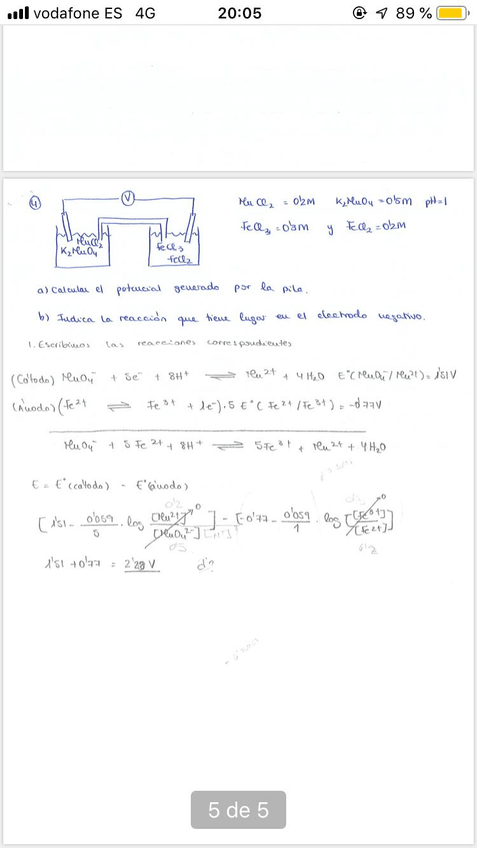 vodafone ES 4G 20:05 89 %
4
V
MnCl2
K2MnO4
FeCl3
FeCl2
MnCl2 = 0'2M K2MnO4 = 0'5M pH=1
FeCl3 = 0'3M y FeCl2 = 0'2M
a) Calcular el potencial generado por la pila.
b) Indica la reacción que tiene lugar en el electrodo negativo.
1. Escribimos las reacciones correspondientes
(Cátodo) MnO4- + 5e- + 8H+ ⇌ Mn2+ + 4H2O E°(MnO4-/Mn2+) = 1'51V
(Ánodo) (Fe2+ ⇌ Fe3+ + 1e-)·5 E°(Fe2+/Fe3+) = -0'77V
MnO4- + 5Fe2+ + 8H+ ⇌ 5Fe3+ + Mn2+ + 4H2O
E = E°(cátodo) - E°(ánodo)
[1'51 - 0'059/5 · log [Mn2+]/[MnO42-][H+]] - [-0'77 - 0'059/1 · log [Fe3+]/[Fe2+]]
1'51 + 0'77 = 2'28 V
5 de 5